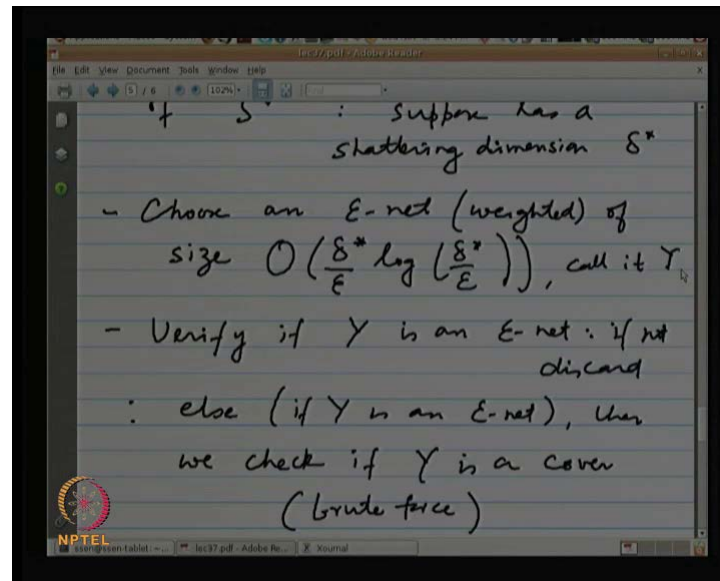 lec37.pdf - Adobe Reader
File Edit View Document Tools Window Help
5 / 6 102% Find
if S* : suppose has a
shattering dimension δ*
- Choose an ε-net (weighted) of
size O(δ*/ε log (δ*/ε)), call it Y
- Verify if Y is an ε-net : if not
discard
: else (if Y is an ε-net), then
we check if Y is a cover
(brute force)
NPTEL
ssen@ssen-tablet: ~... lec37.pdf - Adobe Re... Xournal